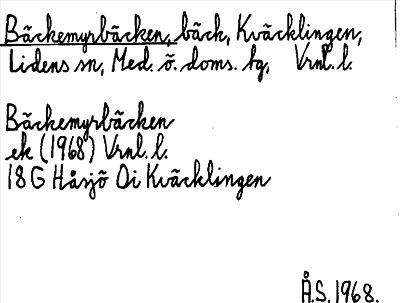 Bäckemyrbäcken, bäck, Kväcklingen,
Lidens sn, Med. ö. doms. tg, Vrnl. l.
Bäckemyrbäcken
ek (1968) Vrnl. l.
18 G Håsjö Oi Kväcklingen
Å.S. 1968.